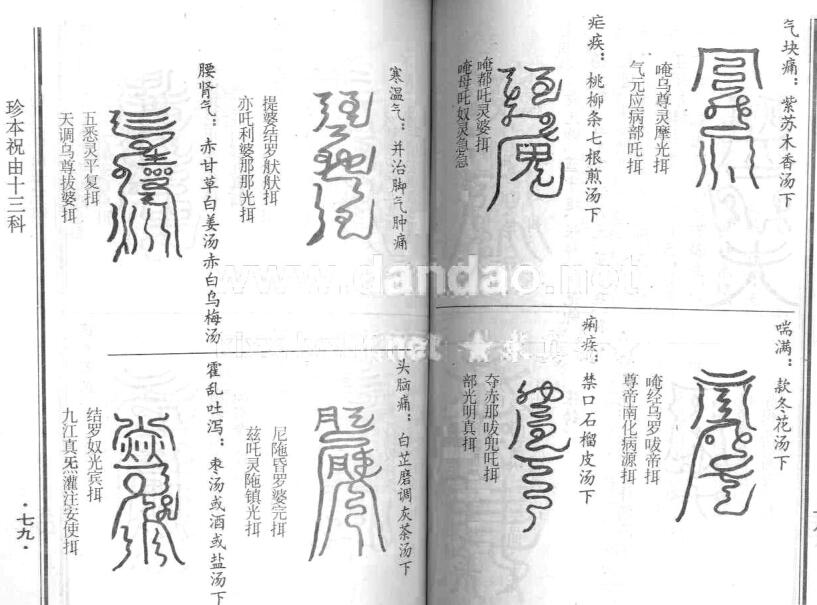 气块痛：紫苏木香汤下
唵乌尊灵摩光挕
气元应病部吒挕
疟疾：桃柳条七根煎汤下
唵都吒灵婆挕
唵母吒奴灵急急
喘满：款冬花汤下
唵经乌罗唆帝挕
尊帝南化病源挕
痢疾：禁口石榴皮汤下
夺赤那唆兜吒挕
部光明真挕
寒温气：并治脚气肿痛
提婆结罗
亦吒利婆那那光挕
腰肾气：赤甘草白姜汤赤白乌梅汤
五悉灵平复挕
天调乌尊拔婆挕
头脑痛：白芷磨调灰茶汤下
尼陁昏罗婆完挕
兹吒灵陁镇光挕
霍乱吐泻：枣汤或酒或盐汤下
结罗奴光宾挕
九江真炁灌注安使挕
珍本祝由十三科
·七九·
www.dandao.net